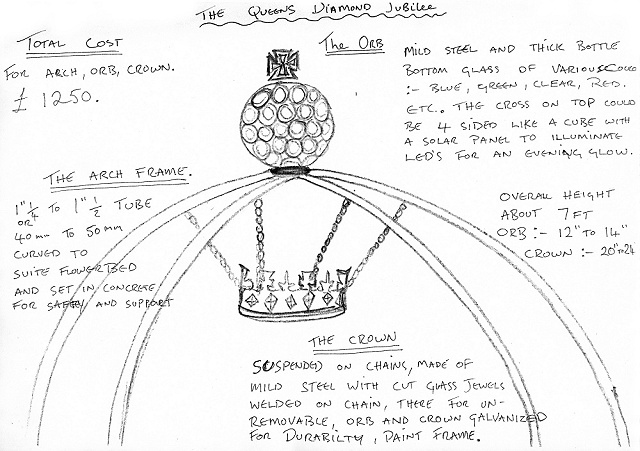 THE QUEENS DIAMOND JUBILEE
TOTAL COST
FOR ARCH, ORB, CROWN.
£ 1250.
THE ORB
MILD STEEL AND THICK BOTTLE
BOTTOM GLASS OF VARIOUS
:- BLUE, GREEN, CLEAR, RED.
ETC. THE CROSS ON TOP COULD
BE 4 SIDED LIKE A CUBE WITH
A SOLAR PANEL TO ILLUMINATE
LED'S FOR AN EVENING GLOW.
THE ARCH FRAME.
1" 1/4 TO 1" 1/2 TUBE
OR
40mm TO 50mm
CURVED TO
SUITE FLOWERBED
AND SET IN CONCRETE
FOR SAFETY AND SUPPORT
OVERALL HEIGHT
ABOUT 7FT
ORB :- 12" TO 14"
CROWN :- 20" TO 24
THE CROWN
SUSPENDED ON CHAINS, MADE OF
MILD STEEL WITH CUT GLASS JEWELS
WELDED ON CHAIN, THERE FOR UN-
REMOVABLE, ORB AND CROWN GALVANIZED
FOR DURABILTY, PAINT FRAME.